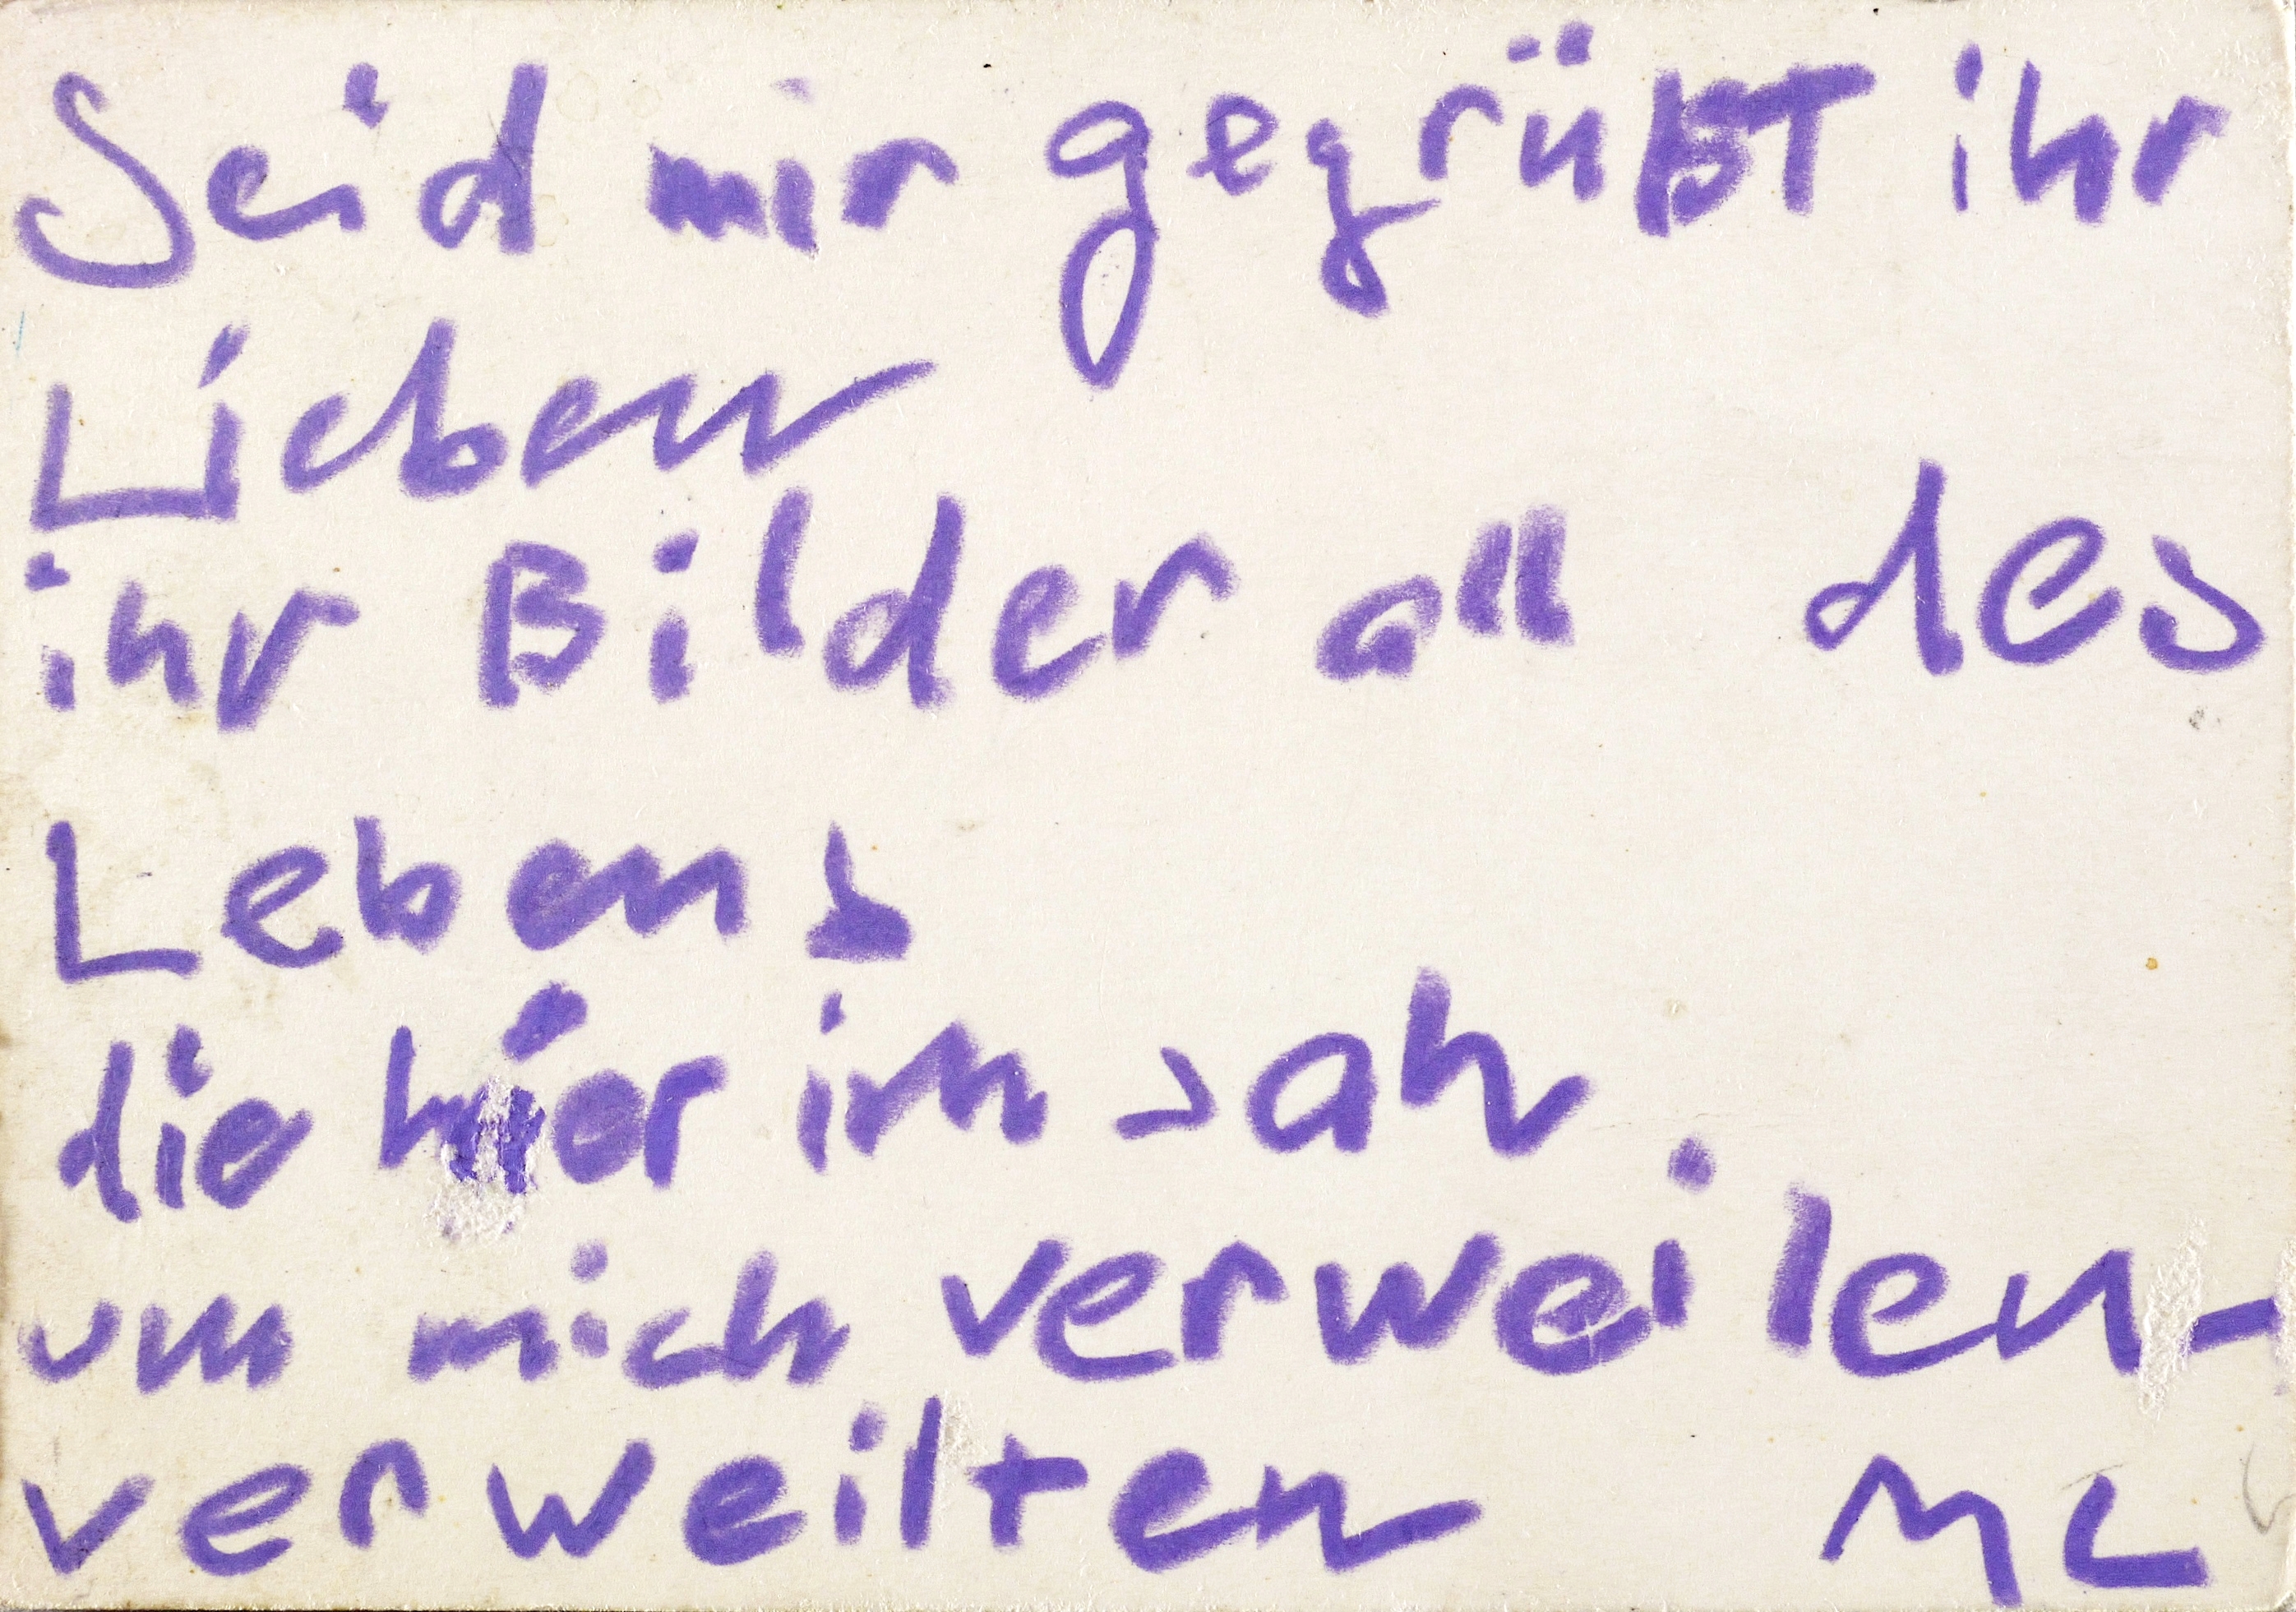 Seid mir gegrüßT ihr
Lieben
ihr Bilder all des
Lebens
die hier im sah
um mich verweilen-
verweilten ML